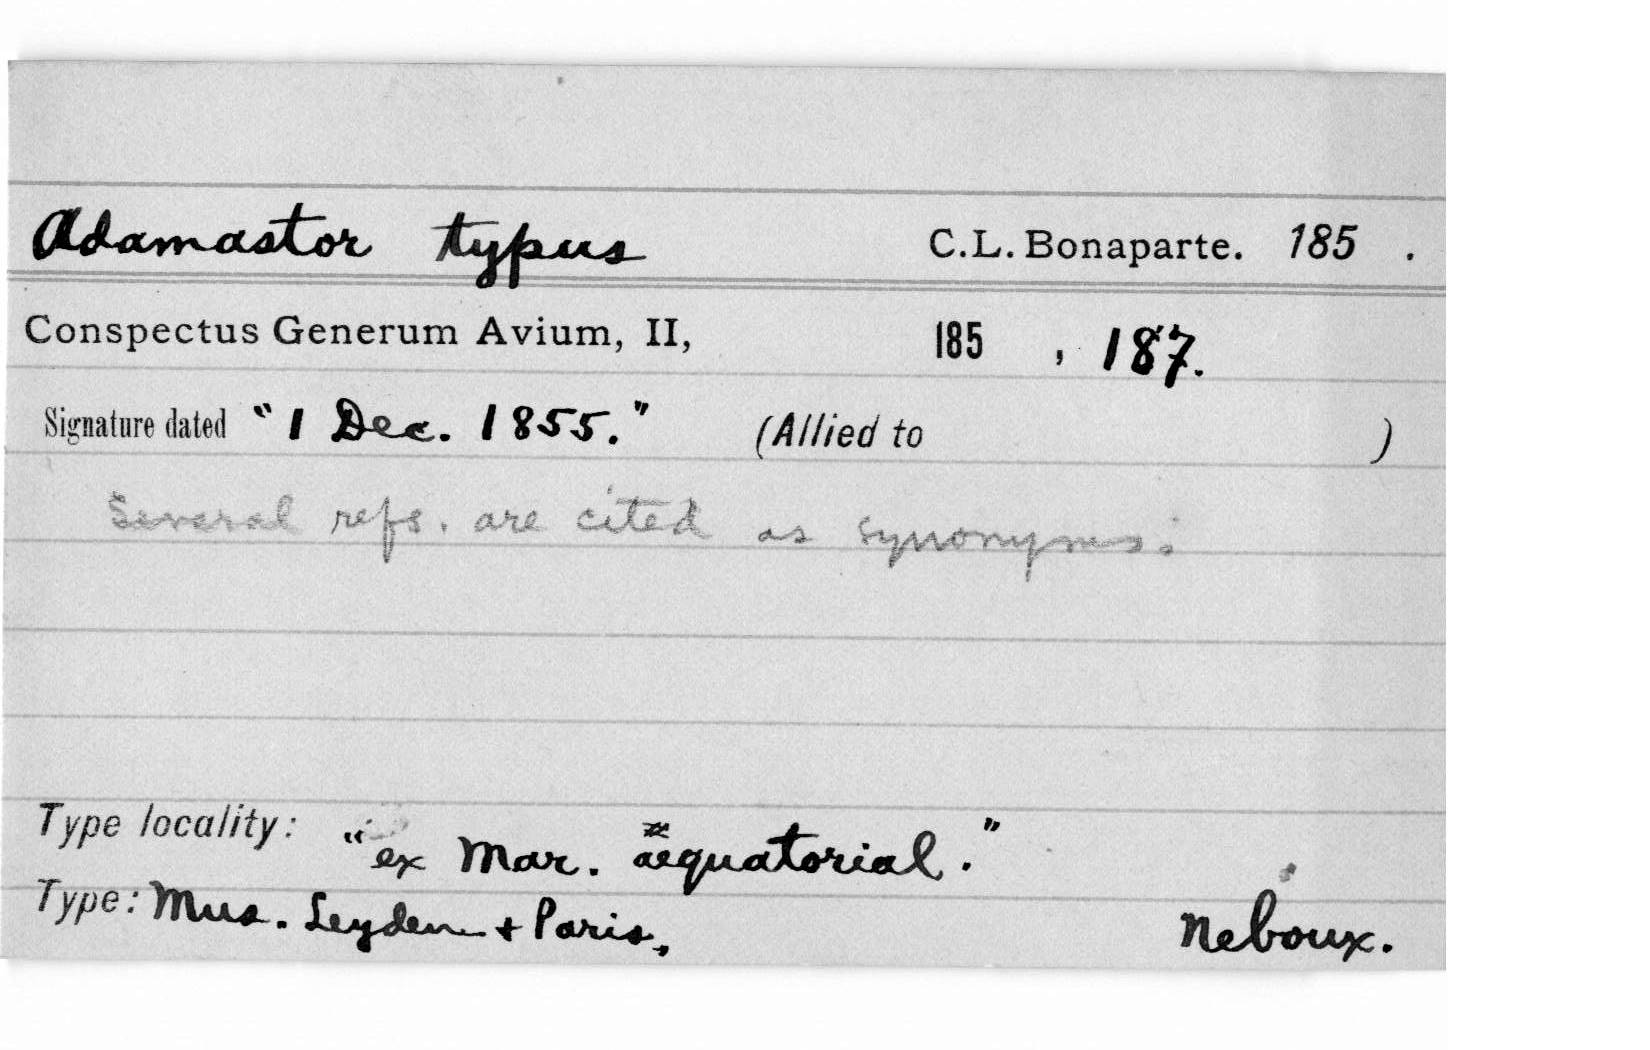 Adamastor typus C.L. Bonaparte. 185 .
Conspectus Generum Avium, II, 185 , 187.
Signature dated "1 Dec. 1855." (Allied to )
Several refs. are cited as synonyms.
Type locality: "ex Mar. æquatorial."
Type: Mus. Leyden + Paris, Neboux.